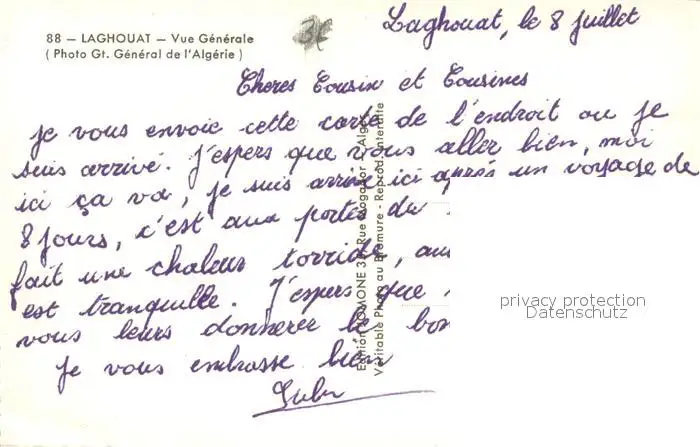 88 — LAGHOUAT — Vue Générale
( Photo Gt. Général de l'Algérie )
3€
Laghouat, le 8 juillet
Cheres Cousin et Cousines
Je vous envoie cette carte de l'endroit ou je
suis arrivé. J'espers que vous aller bien, moi
ici ça va, je suis arrivé ici après un voyage de
8 jours, c'est aux portes du
fait une chaleur torride, au
est tranquille. J'espers que
vous leurs donnerer les bon
Je vous embrasse bien
Edition JOMONE 3 Rue - Alger
Véritable Photo au Bromure - Reprod. Interdite
privacy protection
Datenschutz